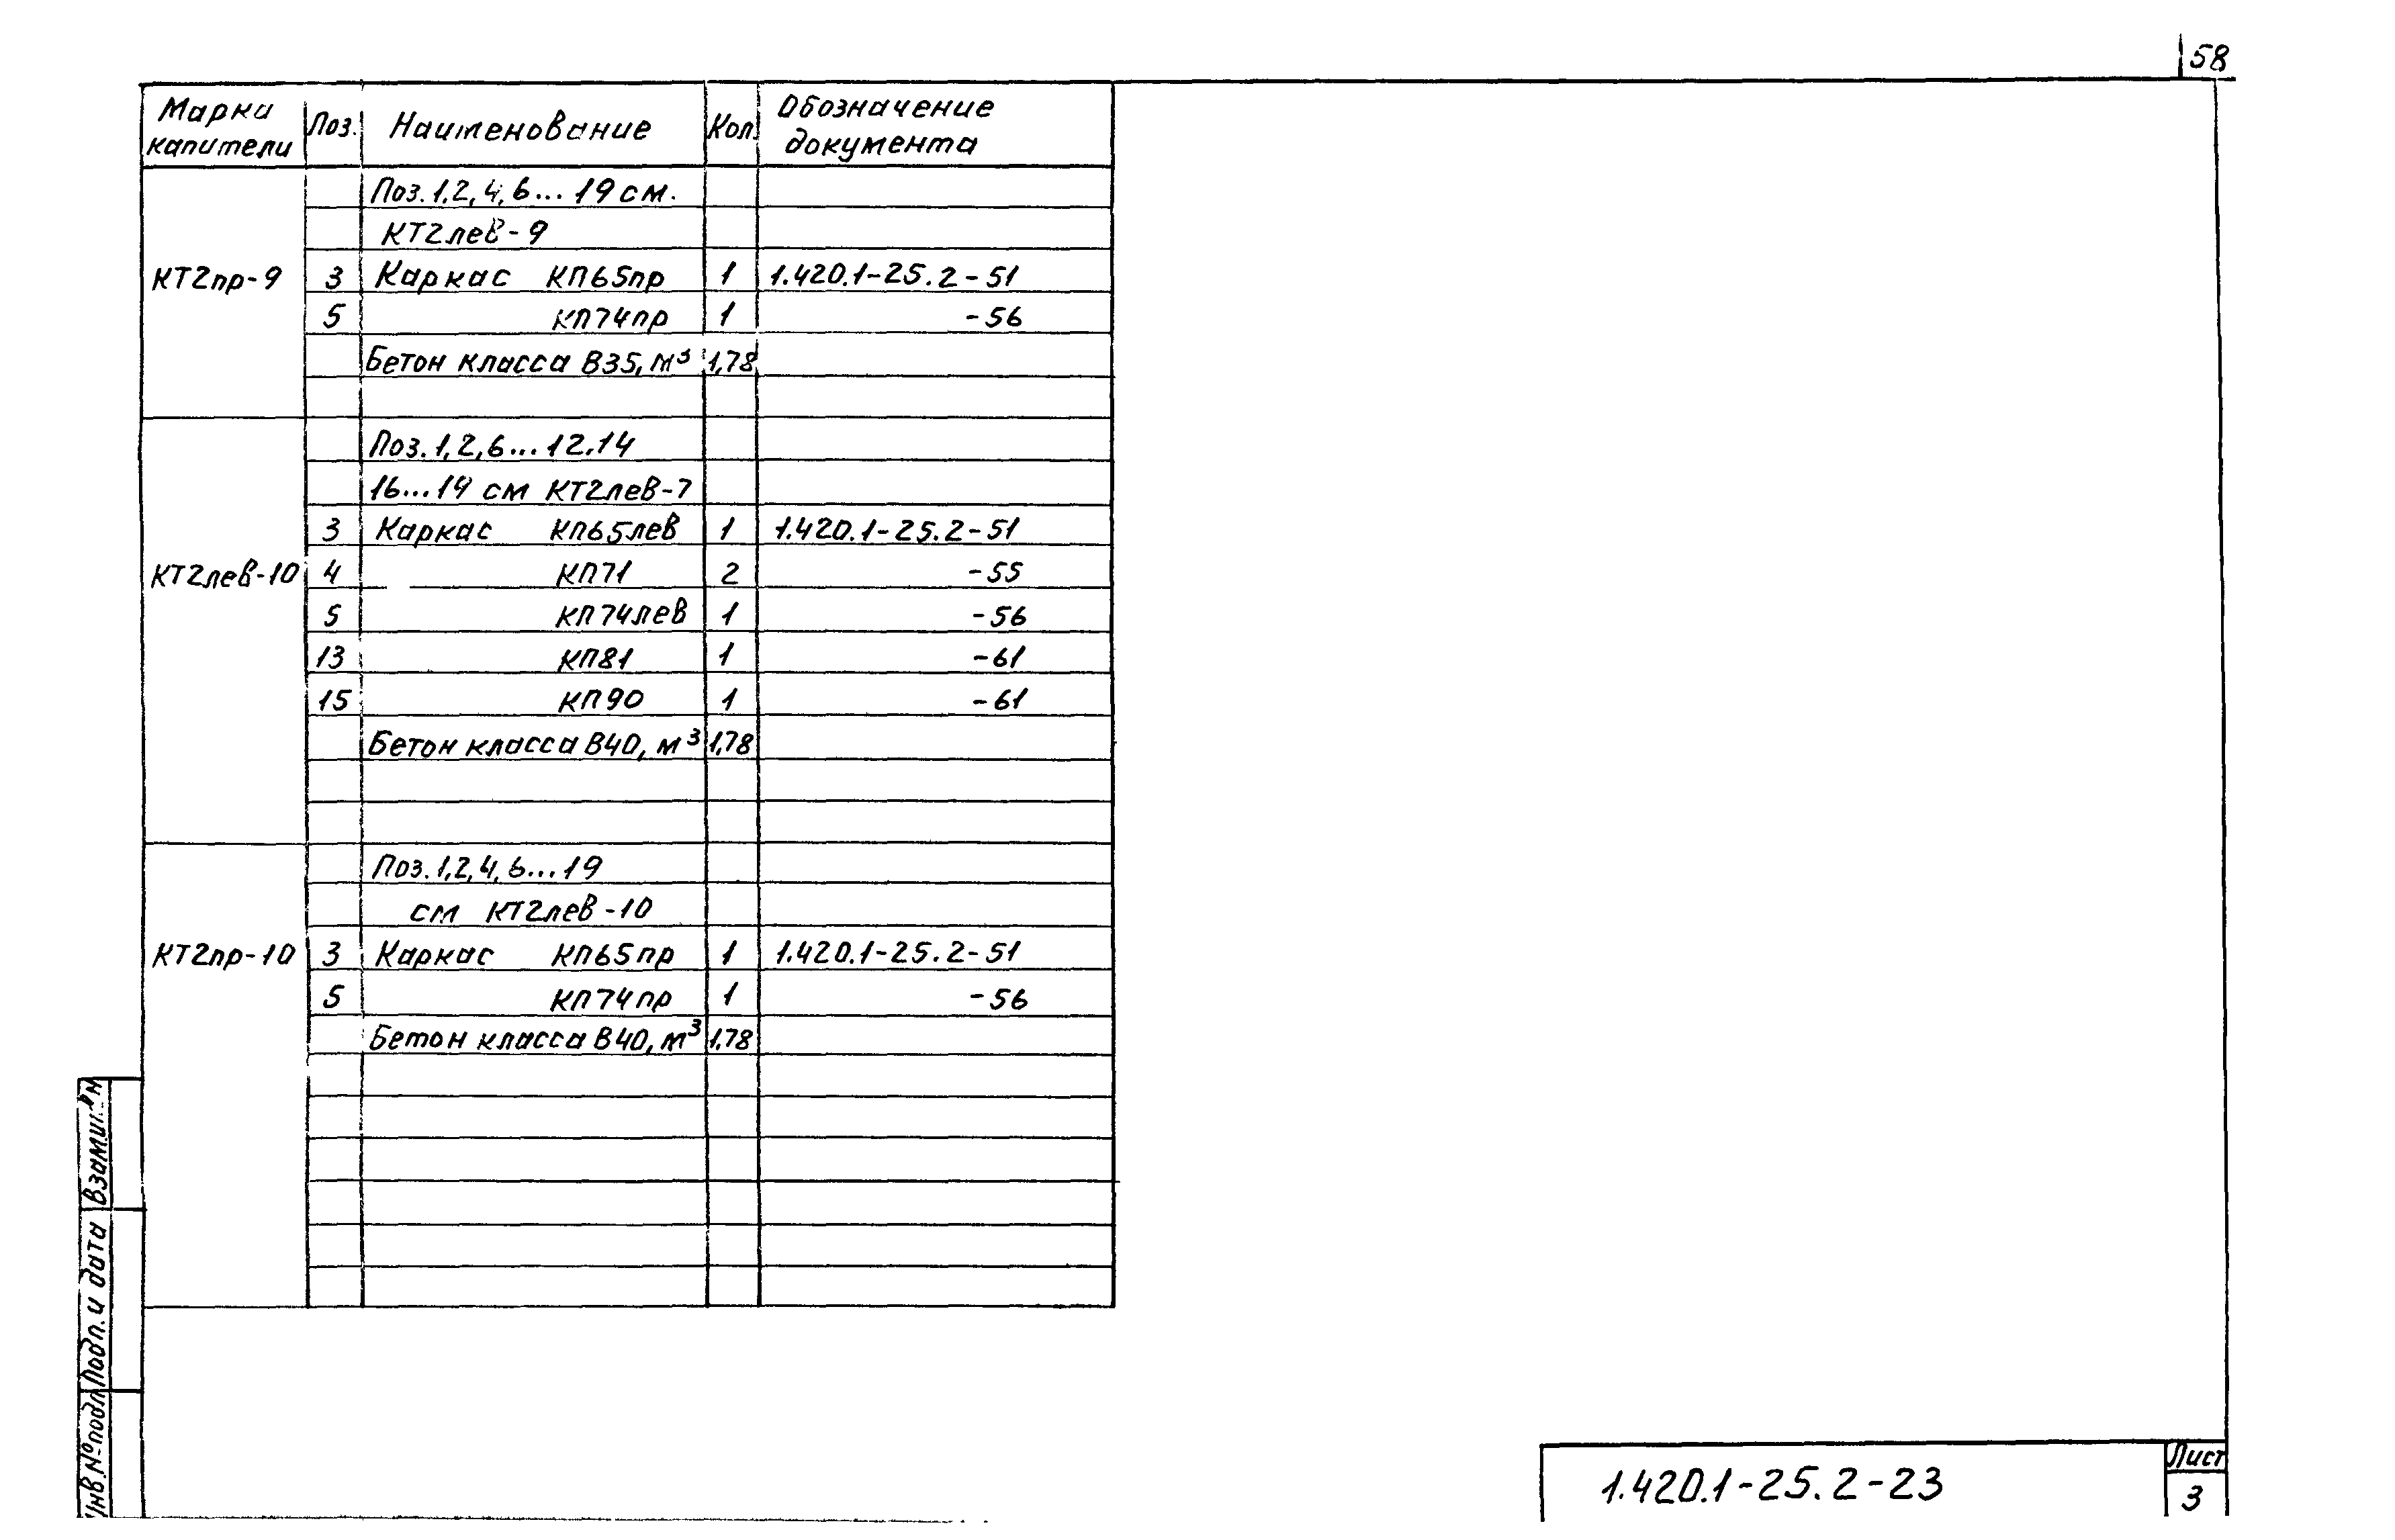 58
Марки капители Поз. Наименование Кол. Обозначение документа
Поз. 1,2,4,6...19 см.
КТ2лев-9
КТ2пр-9 3 Каркас КП65пр 1 1.420.1-25.2-51
5 КП74пр 1 -56
Бетон класса В35, м³ 1,78
Поз. 1,2,6...12,14
16...19 см КТ2лев-7
3 Каркас КП65лев 1 1.420.1-25.2-51
КТ2лев-10 4 КП71 2 -55
5 КП74лев 1 -56
13 КП81 1 -61
15 КП90 1 -61
Бетон класса В40, м³ 1,78
Поз. 1,2,4,6...19
см КТ2лев-10
КТ2пр-10 3 Каркас КП65пр 1 1.420.1-25.2-51
5 КП74пр 1 -56
Бетон класса В40, м³ 1,78
Взам.и
Подп. и дата
Инв.№подл
1.420.1-25.2-23
Лист
3